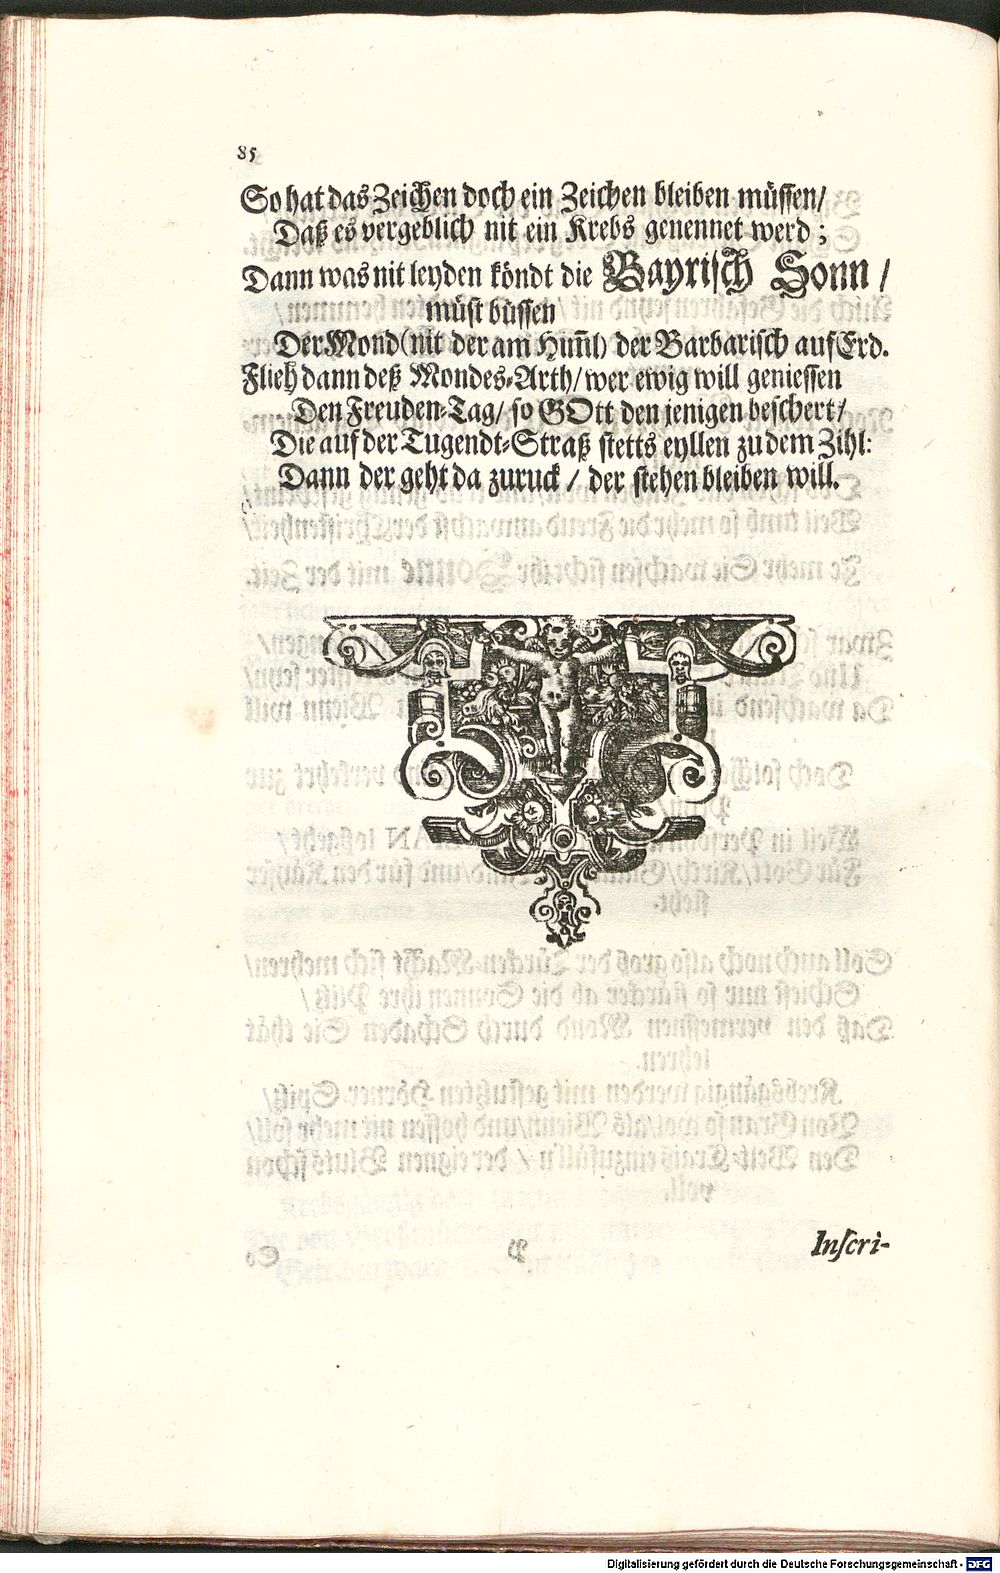 85
So hat das Zeichen doch ein Zeichen bleiben müssen/
Daß es vergeblich nit ein Krebs genennet werd;
Dann was nit leyden köndt die Bayrisch Sonn /
müst büssen
Der Mond (nit der am Him̃l) der Barbarisch auf Erd.
Flieh dann deß Mondes-Arth/ wer ewig will geniessen
Den Freuden-Tag/ so GOtt den jenigen beschert/
Die auf der Tugendt-Straß stetts eyllen zu dem Zihl:
Dann der geht da zuruck / der stehen bleiben will.
Inscri-
Digitalisierung gefördert durch die Deutsche Forschungsgemeinschaft - DFG